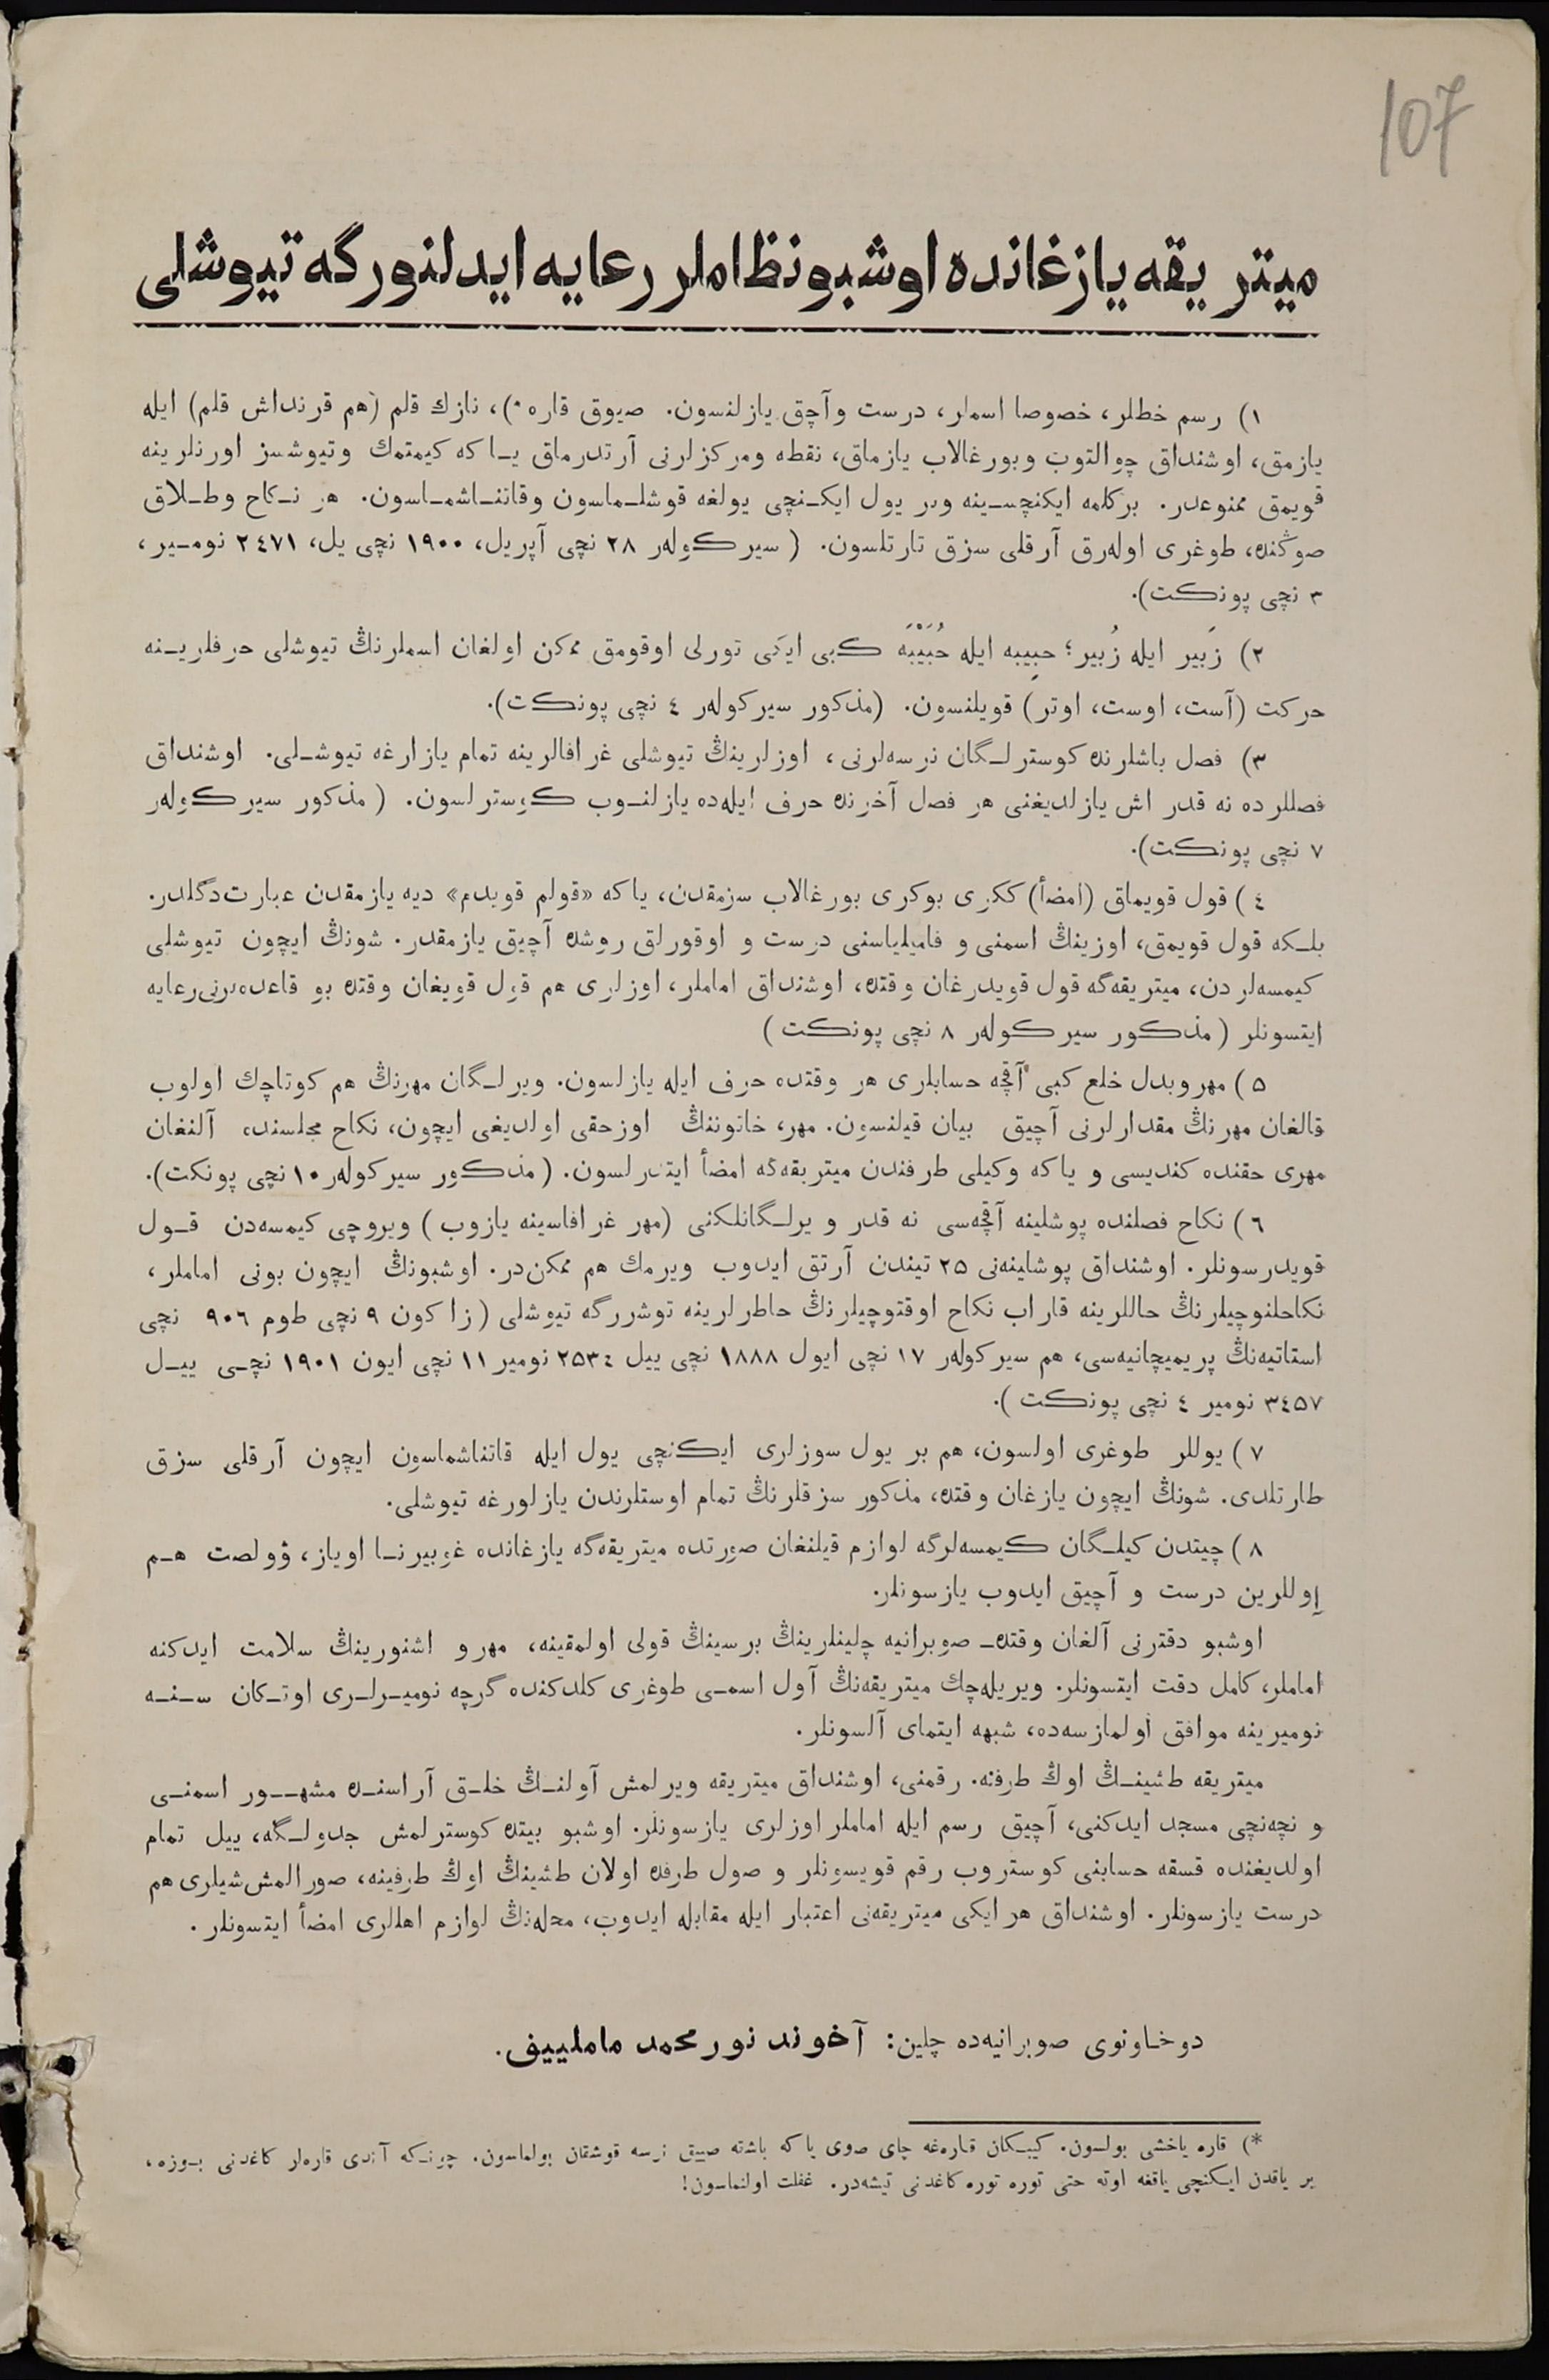 107
ميتريقه يازغانده اوشبو نظاملر رعايه ايدلنورگه تيوشلى
١) رسم خطلر، خصوصا اسملر، درست وآچق يازلنسون. صيوق قاره *)، نازك قلم (هم قرنداش قلم) ايله
يازمق، اوشنداق چوالتوب وبورغالاب يازماق، نقطه ومركزلرنى آرتدرماق ياكه كيمتمك وتيوشسز اورنلرينه
قويمق ممنوعدر. بركلمه ايكنچسينه وبر يول ايكنچى يولغه قوشلماسون وقاتناشماسون. هر نكاح وطلاق
صوڭنده، طوغرى اولەرق آرقلى سزق تارتلسون. (سيركولەر ٢٨ نچى آپريل، ١٩٠٠ نچى يل، ٢٤٧١ نومير،
٣ نچى پونكت).
٢) زَبير ايله زُبير؛ حبِيبه ايله حُبَيْبَه كبى ايكى تورلى اوقومق ممكن اولغان اسملرنڭ تيوشلى حرفلرينه
حركت (آست، اوست، اوتر) قويلنسون. (مذكور سيركولەر ٤ نچى پونكت).
٣) فصل باشلرنده كوسترلگان نرسەلرنى، اوزلرينڭ تيوشلى غرافالرينه تمام يازارغه تيوشلى. اوشنداق
فصللرده نه قدر اش يازلديغنى هر فصل آخرنده حرف ايلەده يازلنوب كوسترلسون. (مذكور سيركولەر
٧ نچى پونكت).
٤) قول قويماق (امضأ) ككرى بوكرى بورغالاب سزمقدن، ياكه «قولم قويدم» ديه يازمقدن عبارت دگلدر.
بلكه قول قويمق، اوزينڭ اسمنى و فاميلياسنى درست و اوقورلق روشده آچيق يازمقدر. شونڭ ايچون تيوشلى
كيمسەلردن، ميتريقەگه قول قويدرغان وقتده، اوشنداق اماملر، اوزلرى هم قول قويغان وقتده بو قاعدەلرنى رعايه
ايتسونلر (مذكور سيركولەر ٨ نچى پونكت)
٥) مهر وبدل خلع كبى آقچه حسابلرى هر وقتده حرف ايله يازلسون. ويرلگان مهرنڭ هم كوتاچك اولوب
قالغان مهرنڭ مقدارلرنى آچيق بيان قيلنسون. مهر، خاتوننڭ اوزحقى اولديغى ايچون، نكاح مجلسنده آلنغان
مهرى حقنده كنديسى و ياكه وكيلى طرفندن ميتريقەگه امضأ ايتدرلسون. (مذكور سيركولەر ١٠ نچى پونكت).
٦) نكاح فصلنده پوشلينه آقچەسى نه قدر ويرلگانلكنى (مهر غرافاسينه يازوب) ويروچى كيمسەدن قول
قويدرسونلر. اوشنداق پوشلينەنى ٢٥ تيندن آرتق ايدوب ويرمك هم ممكن در. اوشبونڭ ايچون بونى اماملر،
نكاحلنوچيلرنڭ حاللرينه قاراب نكاح اوقتوچيلرنڭ خاطرلرينه توشررگه تيوشلى (زاكون ٩ نچى طوم ٩٠٦ نچى
استاتيەنڭ پريميچانيەسى، هم سيركولەر ١٧ نچى ايول ١٨٨٨ نچى ييل ٢٥٣٤ نومير ١١ نچى ايون ١٩٠١ نچى ييل
٣٤٥٧ نومير ٤ نچى پونكت).
٧) يوللر طوغرى اولسون، هم بر يول سوزلرى ايكنچى يول ايله قاتناشماسون ايچون آرقلى سزق
طارتلدى. شونڭ ايچون يازغان وقتده، مذكور سزقلرنڭ تمام اوستلرندن يازلورغه تيوشلى.
٨) چيتدن كيلگان كيمسەلرگه لوازم قيلنغان صورتده ميتريقەگه يازغانده غوبيرنا اوياز، ۋولصت هم
اٍوللرين درست و آچيق ايدوب يازسونلر.
اوشبو دقترنى آلغان وقتده صوبرانيه چلينلرينڭ برسينڭ قولى اولمقينه، مهر و اشنورينڭ سلامت ايدكنه
اماملر، كامل دقت ايتسونلر. ويريلەچك ميتريقەنڭ آول اسمى طوغرى كلدكنده گرچه نوميرلرى اوتكان سنه
نوميرينه موافق اولمازسەده، شبهه ايتماى آلسونلر.
ميتريقه طشينڭ اوڭ طرفنه رقمنى، اوشنداق ميتريقه ويرلمش آولنڭ خلق آراسنده مشهور اسمنى
و نچەنچى مسجد ايدكنى، آچيق رسم ايله اماملر اوزلرى يازسونلر. اوشبو بيتده كوسترلمش جدولگه، ييل تمام
اولديغنده قسقه حسابنى كوستروب رقم قويسونلر و صول طرفده اولان طشينڭ اوڭ طرفينه، صورالمش شيلرى هم
درست يازسونلر. اوشنداق هر ايكى ميتريقەنى اعتبار ايله مقابله ايدوب، محلەنڭ لوازم اهللرى امضأ ايتسونلر.
دوخاونوى صوبرانيەده چلين: آخوند نورمحمد ماملييف.
*) قاره ياخشى بولسون. كيبكان قارەغه چاى صوى ياكه باشته صييق نرسه قوشقان بولماسون. چونكه آندى قارەلر كاغدنى بوزه،
بر ياقدن ايكنچى ياقغه اوته حتى توره توره كاغدنى تيشەدر. غفلت اولنماسون!